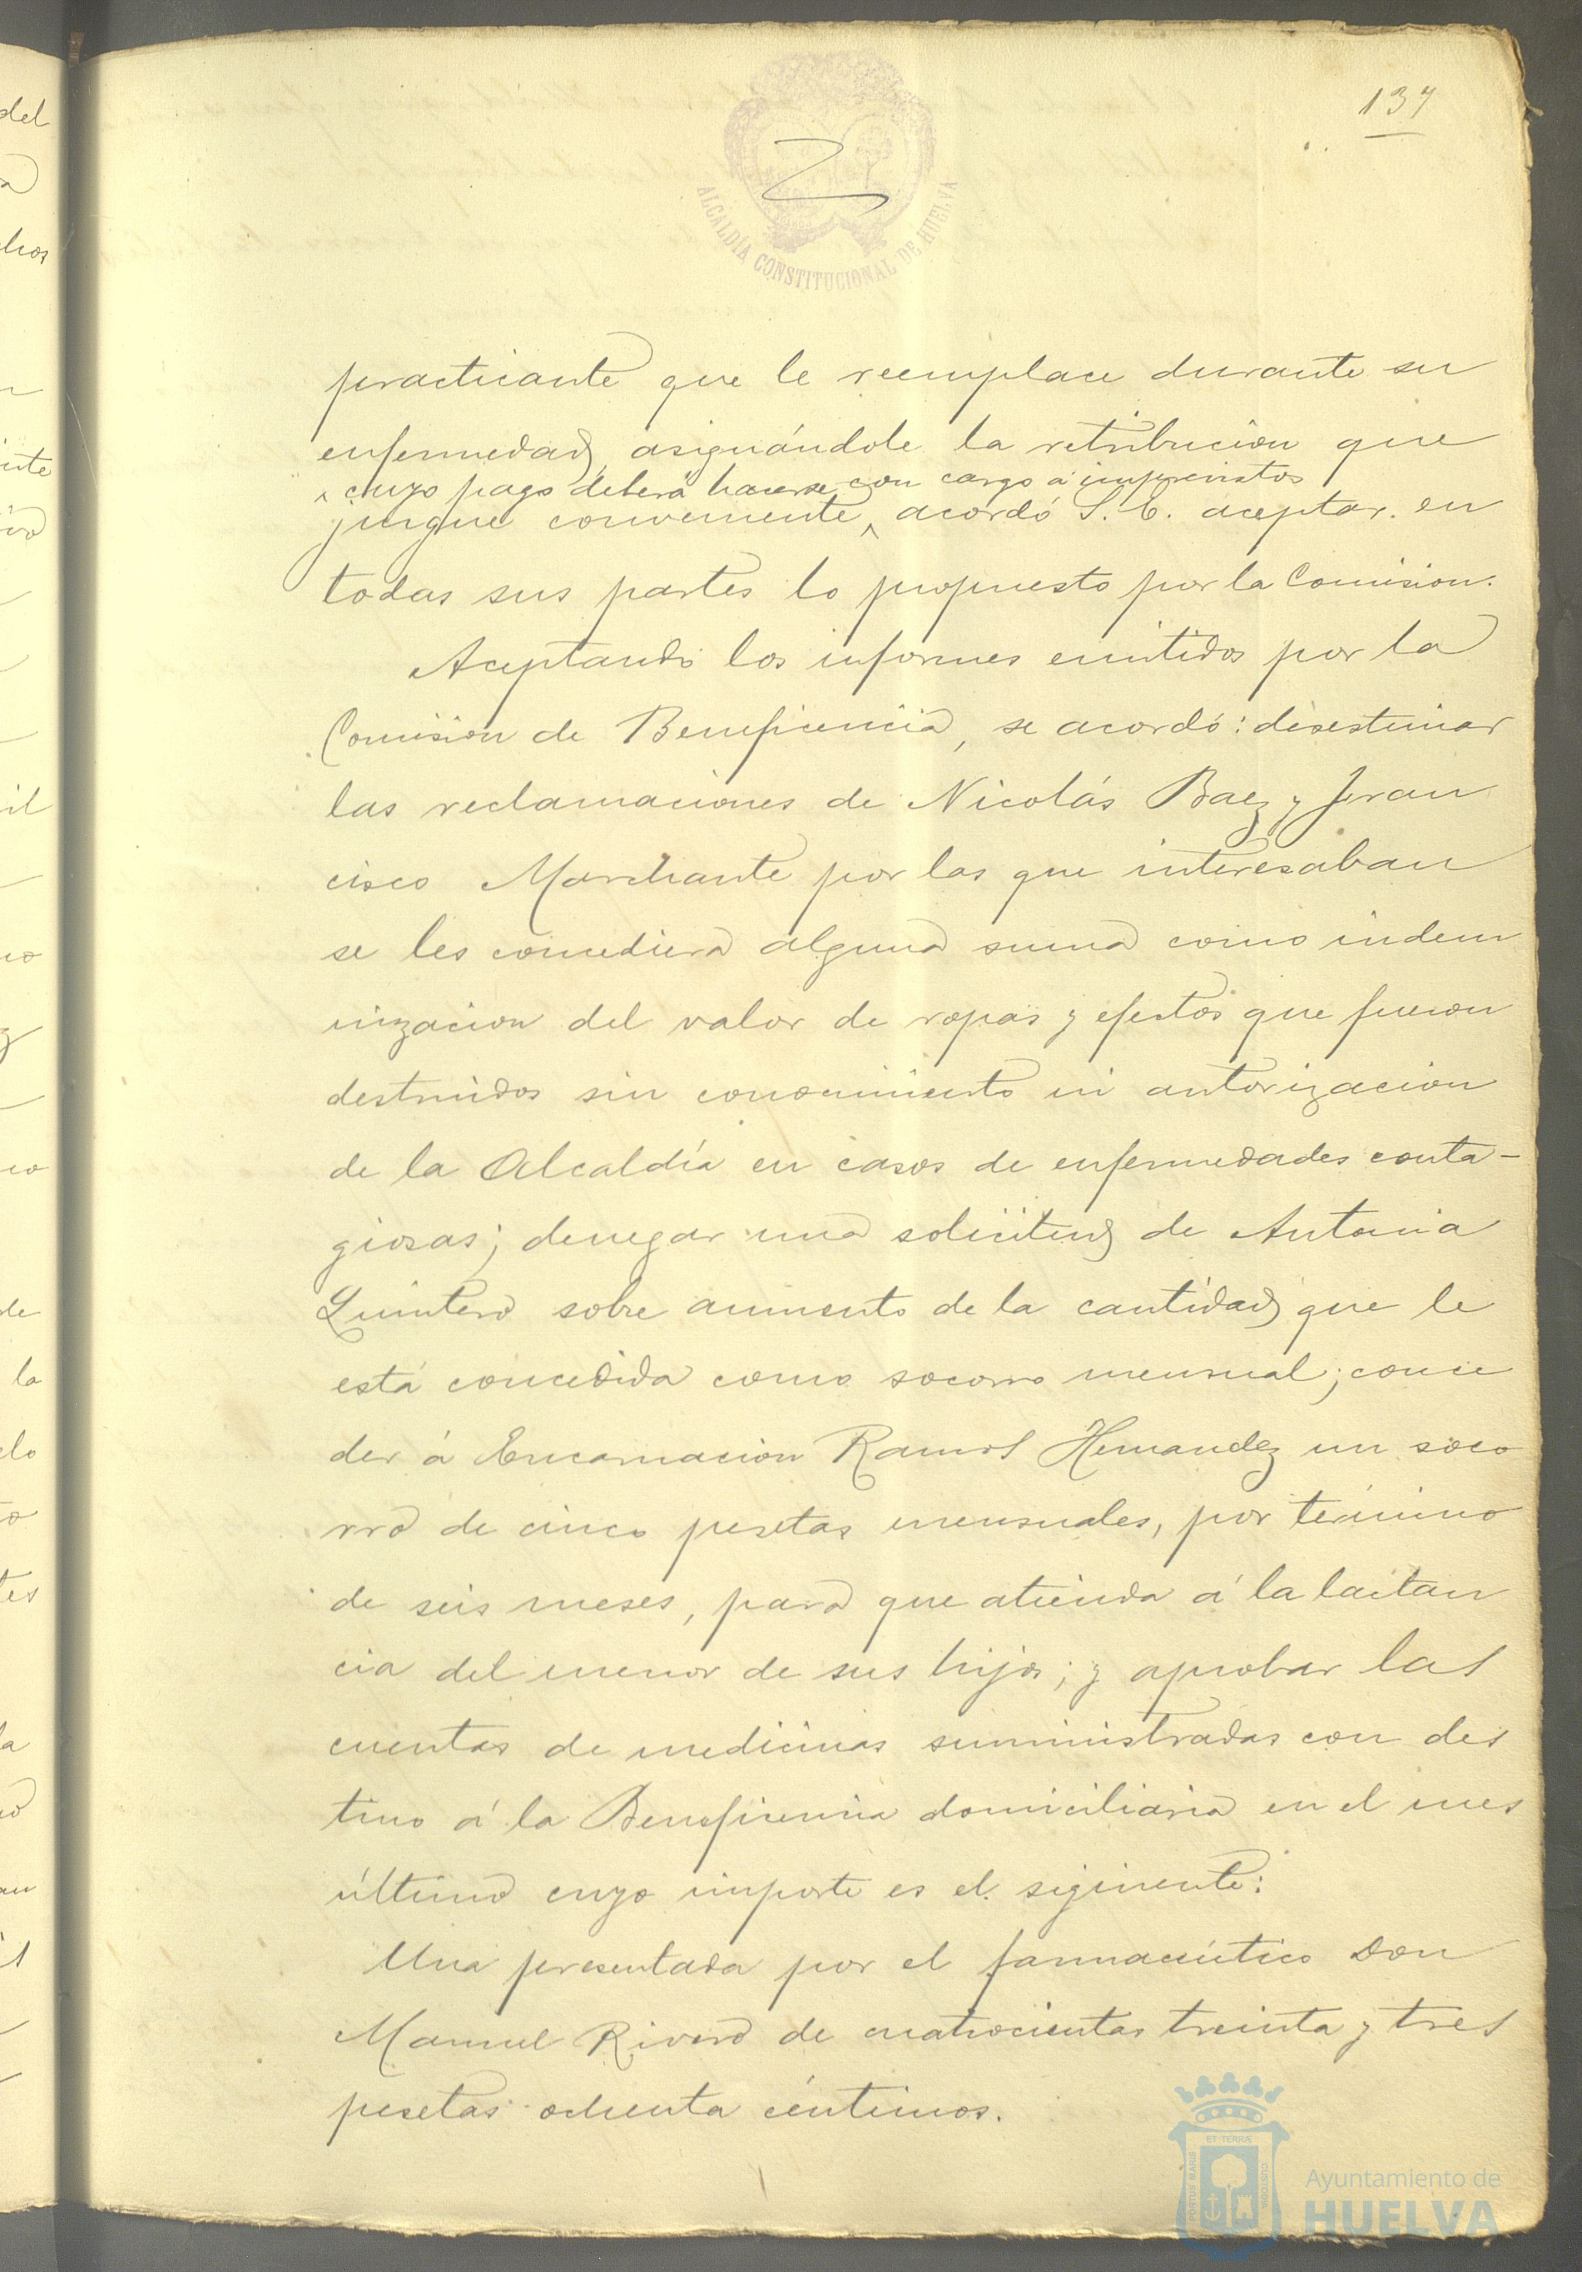 137
ALCALDÍA CONSTITUCIONAL DE HUELVA
practicante que le reemplace durante su
enfermedad, asignándole la retribucion que
^ cuyo pago deberá hacerse con cargo á imprevistos
juzgue conveniente ^ acordó S. E. aceptar en
todas sus partes lo propuesto por la Comision.
Aceptando los informes emitidos por la
Comision de Beneficencia, se acordó: desestimar
las reclamaciones de Nicolás Baez y Fran
cisco Marchante por las que interesaban
se les concediera alguna suma como indem
nizacion del valor de ropas y efectos que fueron
destruidos sin conocimiento ni autorizacion
de la Alcaldía en casos de enfermedades conta-
giosas; denegar una solicitud de Antonia
Quintero sobre aumento de la cantidad que le
está concedida como socorro mensual; conce
der á Encarnacion Ramos Hernandez un soco
rro de cinco pesetas mensuales, por término
de seis meses, para que atienda á la lactan
cia del menor de sus hijos; y aprobar las
cuentas de medicinas suministradas con des
tino á la Beneficencia domiciliaria en el mes
último cuyo importe es el siguiente:
Una presentada por el farmacéutico Don
Manuel Rivero de cuatrocientas treinta y tres
pesetas ochenta céntimos.
PORTUS MARIS
ET TERRÆ
CUSTODIA
Ayuntamiento de
HUELVA